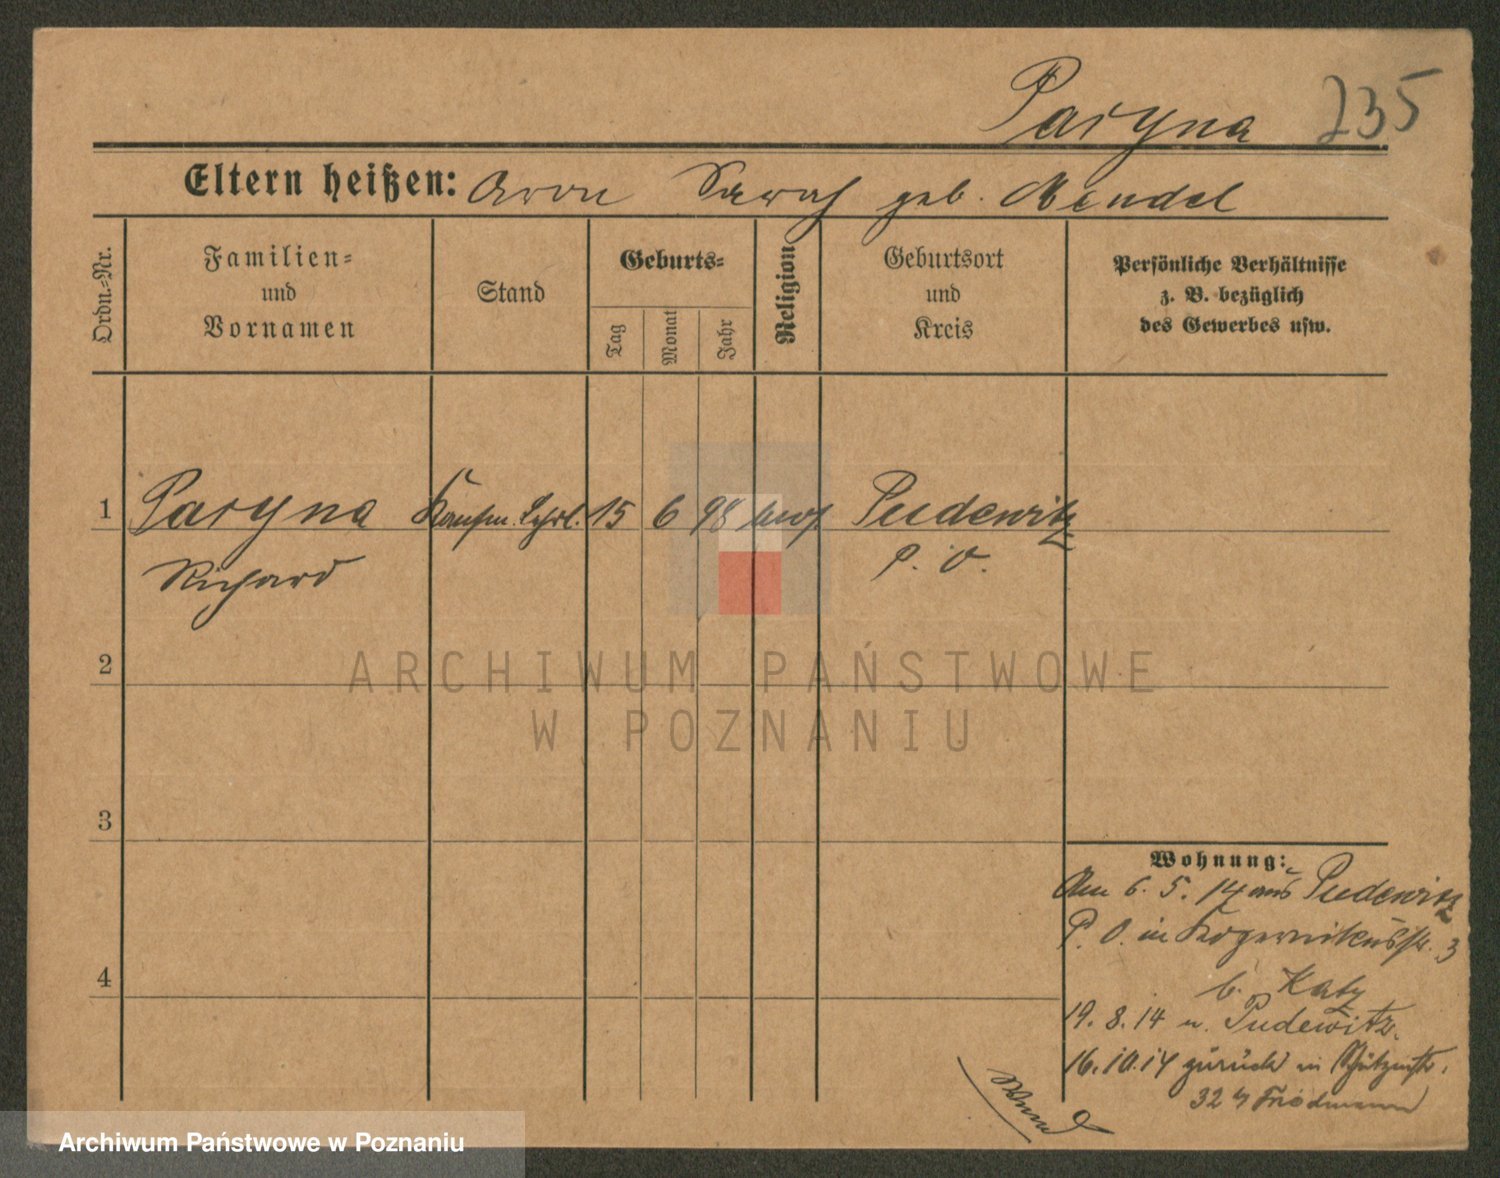 Paryna 235
Eltern heißen: Aron Sarah geb. Mendel
Ordn.-Nr.
Familien-
und
Vornamen
Stand
Geburts-
Tag
Monat
Jahr
Religion
Geburtsort
und
Kreis
Persönliche Verhältnisse
z. B. bezüglich
des Gewerbes usw.
1 Paryna Kaufm. Lehrl. 15 6 98 mos. Pudewitz
Richard P. O.
2
ARCHIWUM PAŃSTWOWE
W POZNANIU
3
Wohnung:
Am 6. 5. 14 aus Pudewitz
P. O. in Kopernikusstr. 3
4
b. Katz
19. 8. 14 n. Pudewitz.
16.10.14 zurück in Schützenstr.
32 Friedmann
Archiwum Państwowe w Poznaniu